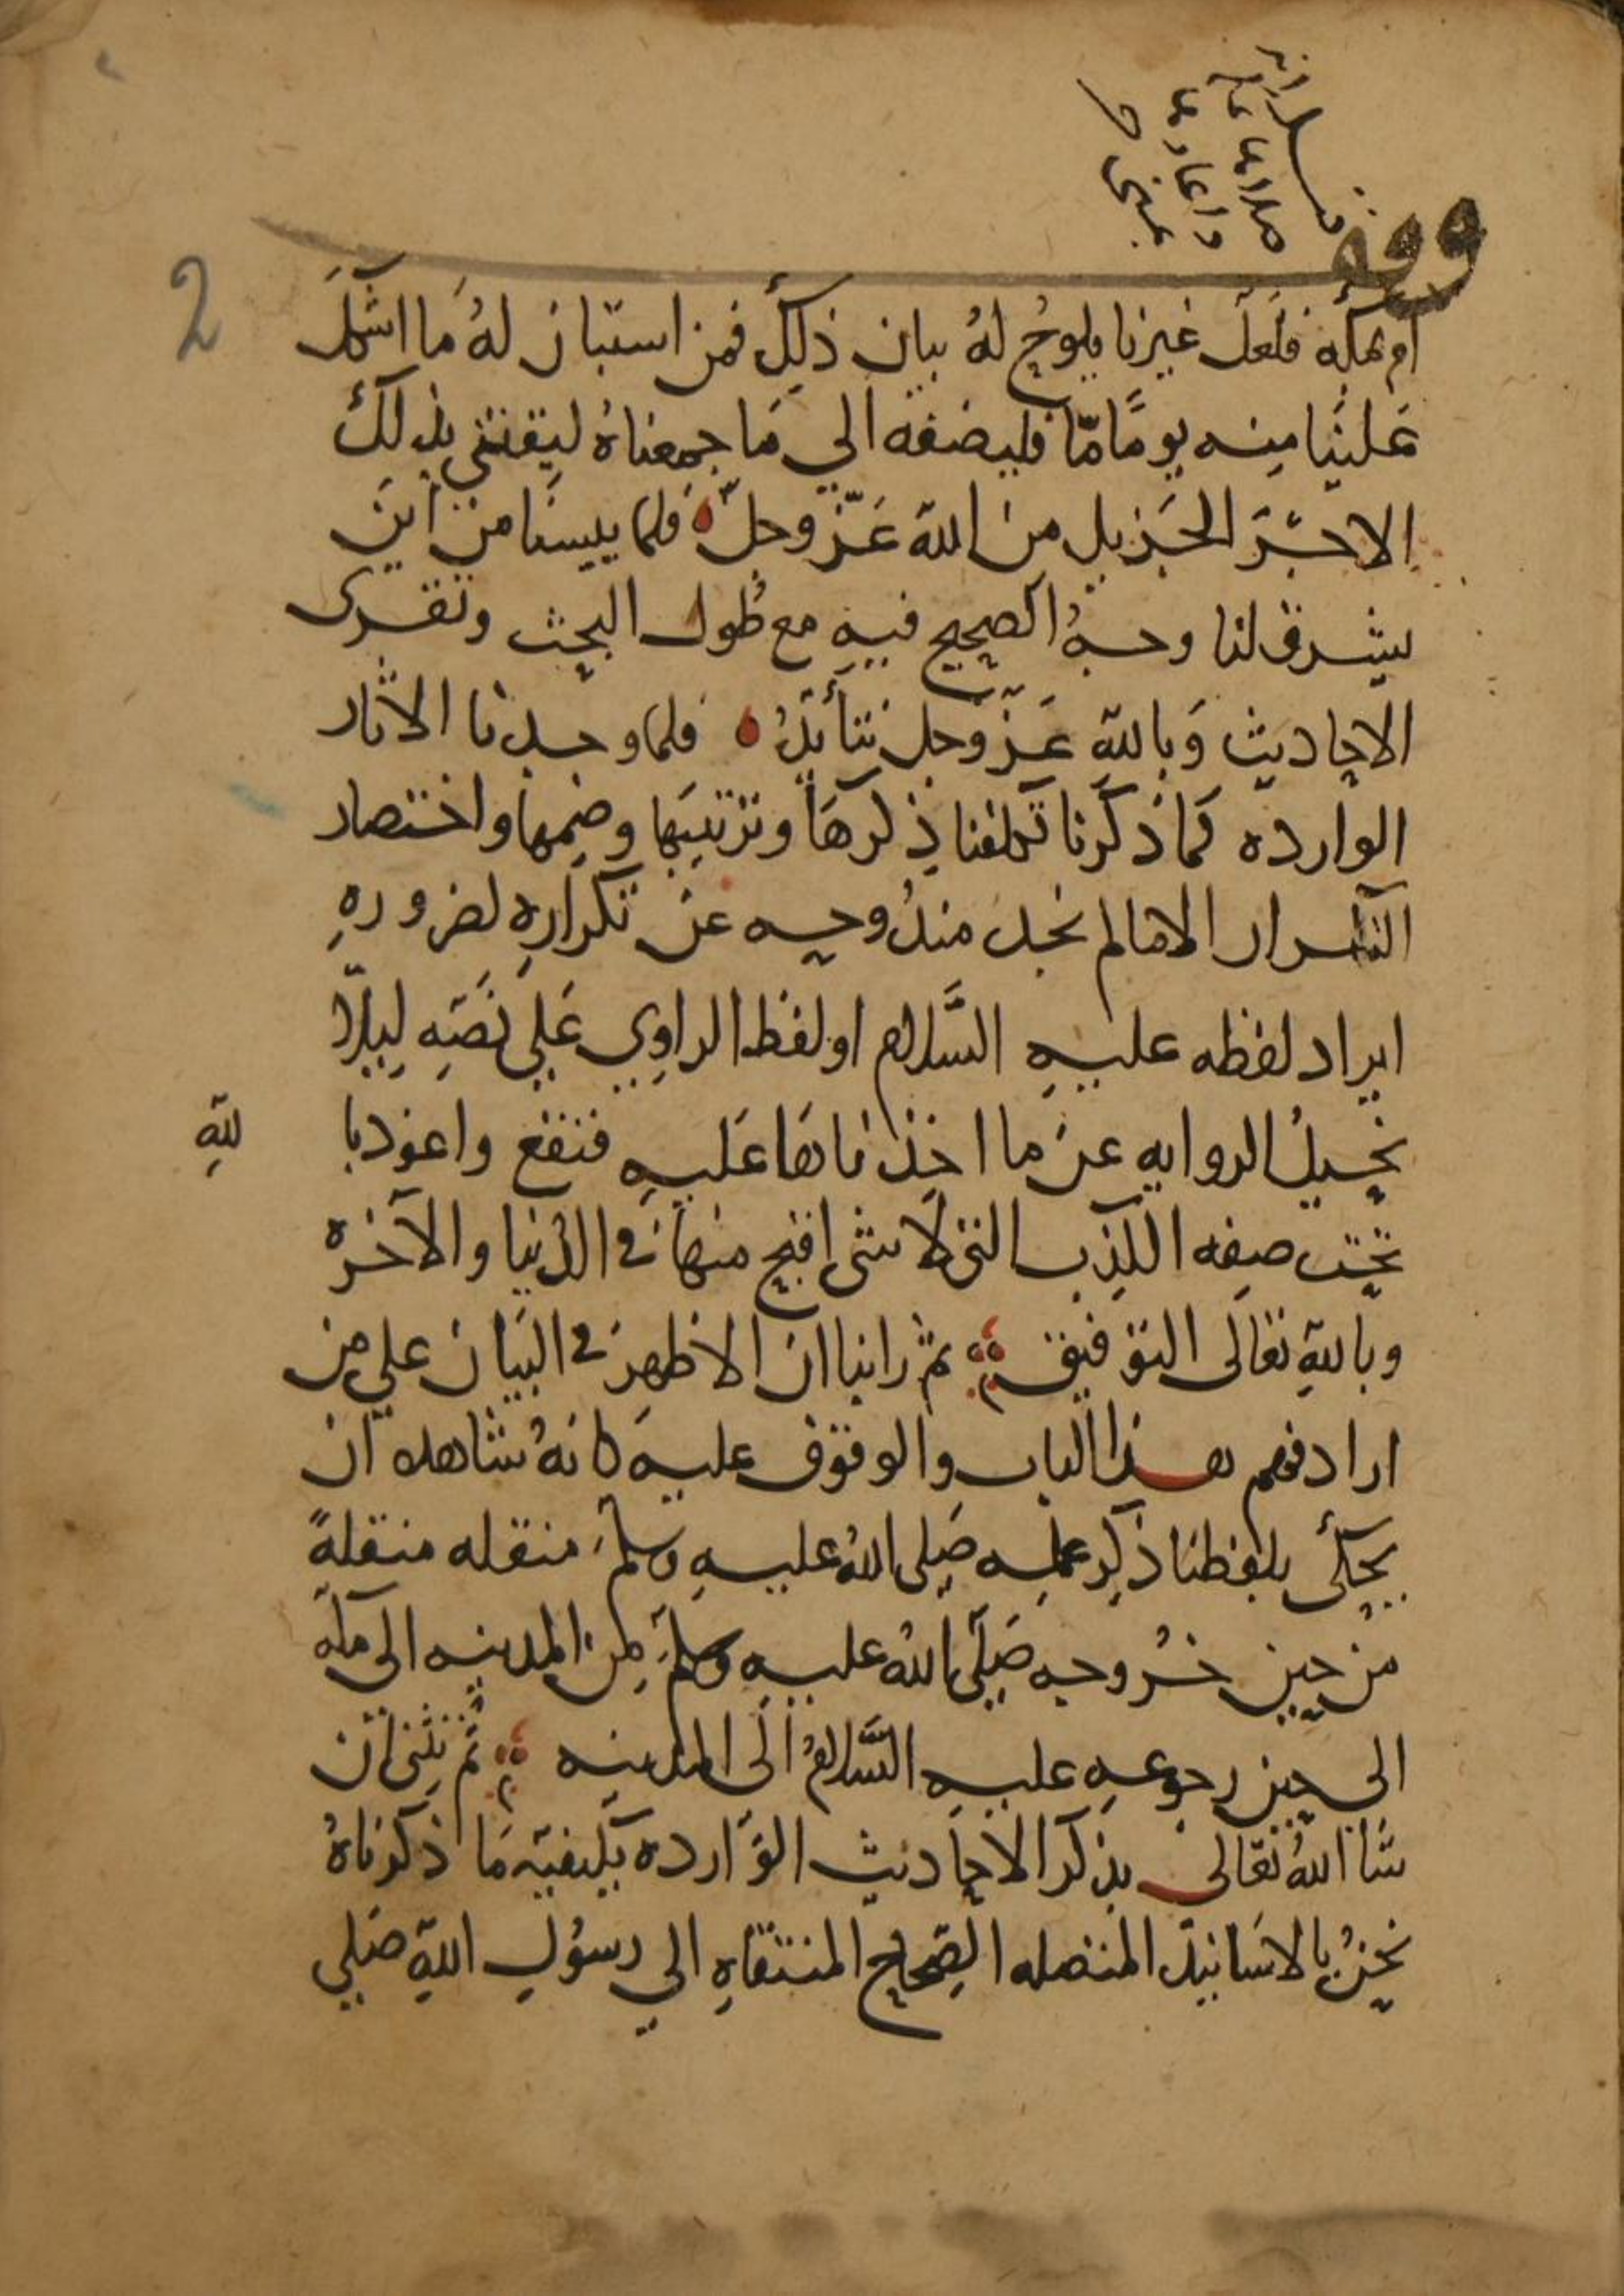 وقف
2
ام بمكه فلعل غيرنا يلوح له بيان ذلك فمن استبان له ما اشكل
علينا منه يومًا مّا فليضفه الي ما جمعناهُ ليقتني بذلك
الاجر الجزيل من الله عزّ وجلّ ه فلما يئسنا من ان
يشرق لنا وجهُ الصحيح فيه مع طول البحث وتقرى
الاحاديث وبالله عزّ وجل نتأيدُ ه فلما وجدنا الاثار
الوارده كما ذكرنا تكلفنا ذكرها وترتيبها وضمها واختصار
التكرار الا ما لم نجد مندوحه عن تكراره لضروره
ايراد لفظه عليه السَّلام او لفظ الراوي علي نصّه ليلاّ
نحيل الروايه عن ما اخذناها عليه فنقع واعوذ با لله
تحت صفه الكذب التي لا شى اقبح منها في الدُّنيا والآخره
وبالله تعالى التوفيق ثم راينا ان الاظهر في البيان علي من
اراد فهم هذا الباب والوقوف عليه كانهُ شاهده ان
يحكى بلفظنا ذكر عمله صلى اللهُ عليه وسلم منقله منقلةً
من حين خروجه صَلّى اللهُ عليه وسلم من المدينه الى مكه
الى حين رجوعه عليه السَّلامُ الى المدينه ثم نثنى ان
شا اللهُ تعالى بذكر الاحاديث الوارده بكيفيّه ما ذكرناهُ
نحنُ بالاسانيد المتصله الصّحاح المنتقاه الي رسول الله صلي